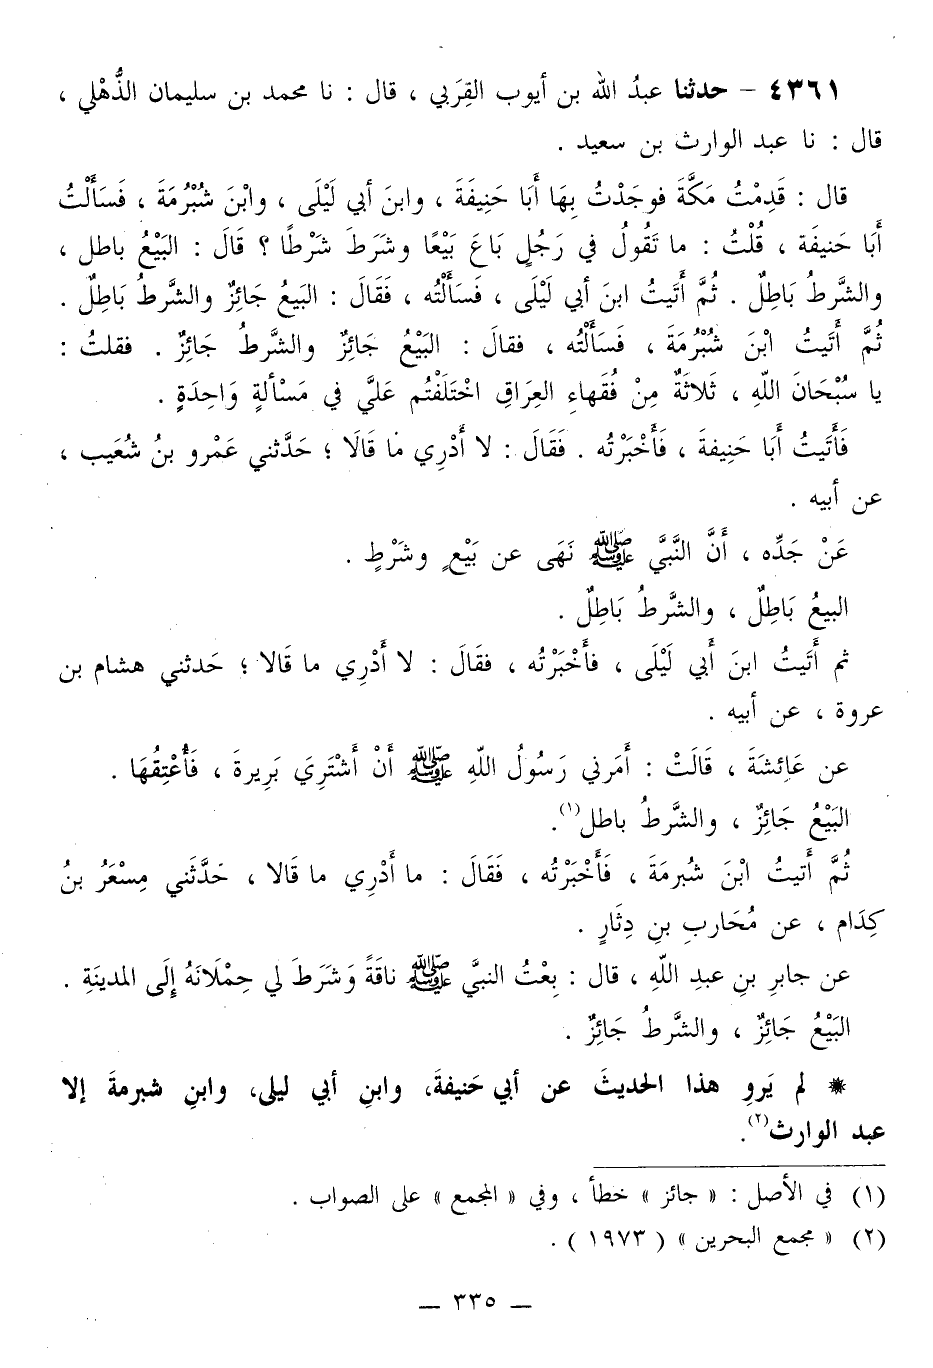 ٤٣٦١ – حدثنا عبدُ الله بن أيوب القِرَبي ، قال : نا محمد بن سليمان الذُّهْلي ،
قال : نا عبد الوارث بن سعيد .
قال : قَدِمْتُ مَكَّةَ فوجَدْتُ بِهَا أَبَا حَنِيفَةَ ، وابنَ أبي لَيْلَى ، وابْنَ شُبْرُمَةَ ، فَسَأَلْتُ
أَبَا حَنيفَة ، قُلْتُ : ما تَقُولُ في رَجُلٍ بَاعَ بَيْعًا وشَرَطَ شَرْطًا ؟ قَالَ : البَيْعُ باطل ،
والشَّرطُ بَاطِلٌ . ثُمَّ أَتَيتُ ابنَ أبي لَيْلَى ، فَسَأَلْتُه ، فَقَالَ : البَيعُ جَائِزٌ والشَّرطُ بَاطِلٌ .
ثُمَّ أَتَيتُ ابْنَ شُبْرُمَةَ ، فَسَأَلْتُه ، فقالَ : البَيْعُ جَائِزٌ والشَّرطُ جَائِزٌ . فقلتُ :
يا سُبْحَانَ اللهِ ، ثَلاثَةٌ مِنْ فُقَهاءِ العِراقِ اخْتَلَفْتُم عَلَيَّ في مَسْألةٍ وَاحِدَةٍ .
فَأَتَيتُ أَبَا حَنِيفةَ ، فَأَخْبَرْتُه . فَقَالَ : لا أَدْرِي ما قَالَا ؛ حَدَّثني عَمْرو بنُ شُعَيب ،
عن أبيه .
عَنْ جَدِّه ، أَنَّ النَّبيَّ ﷺ نَهَى عن بَيْعٍ وشَرْطٍ .
البيعُ بَاطِلٌ ، والشَّرطُ بَاطِلٌ .
ثم أَتَيتُ ابنَ أَبي لَيْلَى ، فأَخْبَرْتُه ، فقَالَ : لا أَدْرِي ما قَالا ؛ حَدثني هشام بن
عروة ، عن أبيه .
عن عَائِشَةَ ، قَالَتْ : أَمَرني رَسُولُ اللهِ ﷺ أَنْ أَشْتَرِيَ بَرِيرةَ ، فَأُعْتِقُهَا .
البَيْعُ جَائِزٌ ، والشَّرطُ باطل(١).
ثُمَّ أَتيتُ ابْنَ شُبرمَةَ ، فَأَخْبَرْتُه ، فَقَالَ : ما أَدْرِي ما قَالا ، حَدَّثَني مِسْعَرُ بنُ
كِدَام ، عن مُحَاربِ بنِ دِثَارٍ .
عن جابرِ بنِ عبدِ اللهِ ، قال : بِعْتُ النبيَّ ﷺ ناقَةً وَشَرَطَ لي حِمْلَانَهُ إِلَى المدينَةِ .
البَيْعُ جَائِزٌ ، والشَّرطُ جَائِزٌ .
* لم يَروِ هذا الحديثَ عن أبي حَنيفةَ، وابنِ أبي ليلى، وابنِ شبرمةَ إلا
عبد الوارث(٢).
(١) في الأصل : « جائز » خطأ ، وفي « المجمع » على الصواب .
(٢) « مجمع البحرين » ( ١٩٧٣ ) .
— ٣٣٥ —